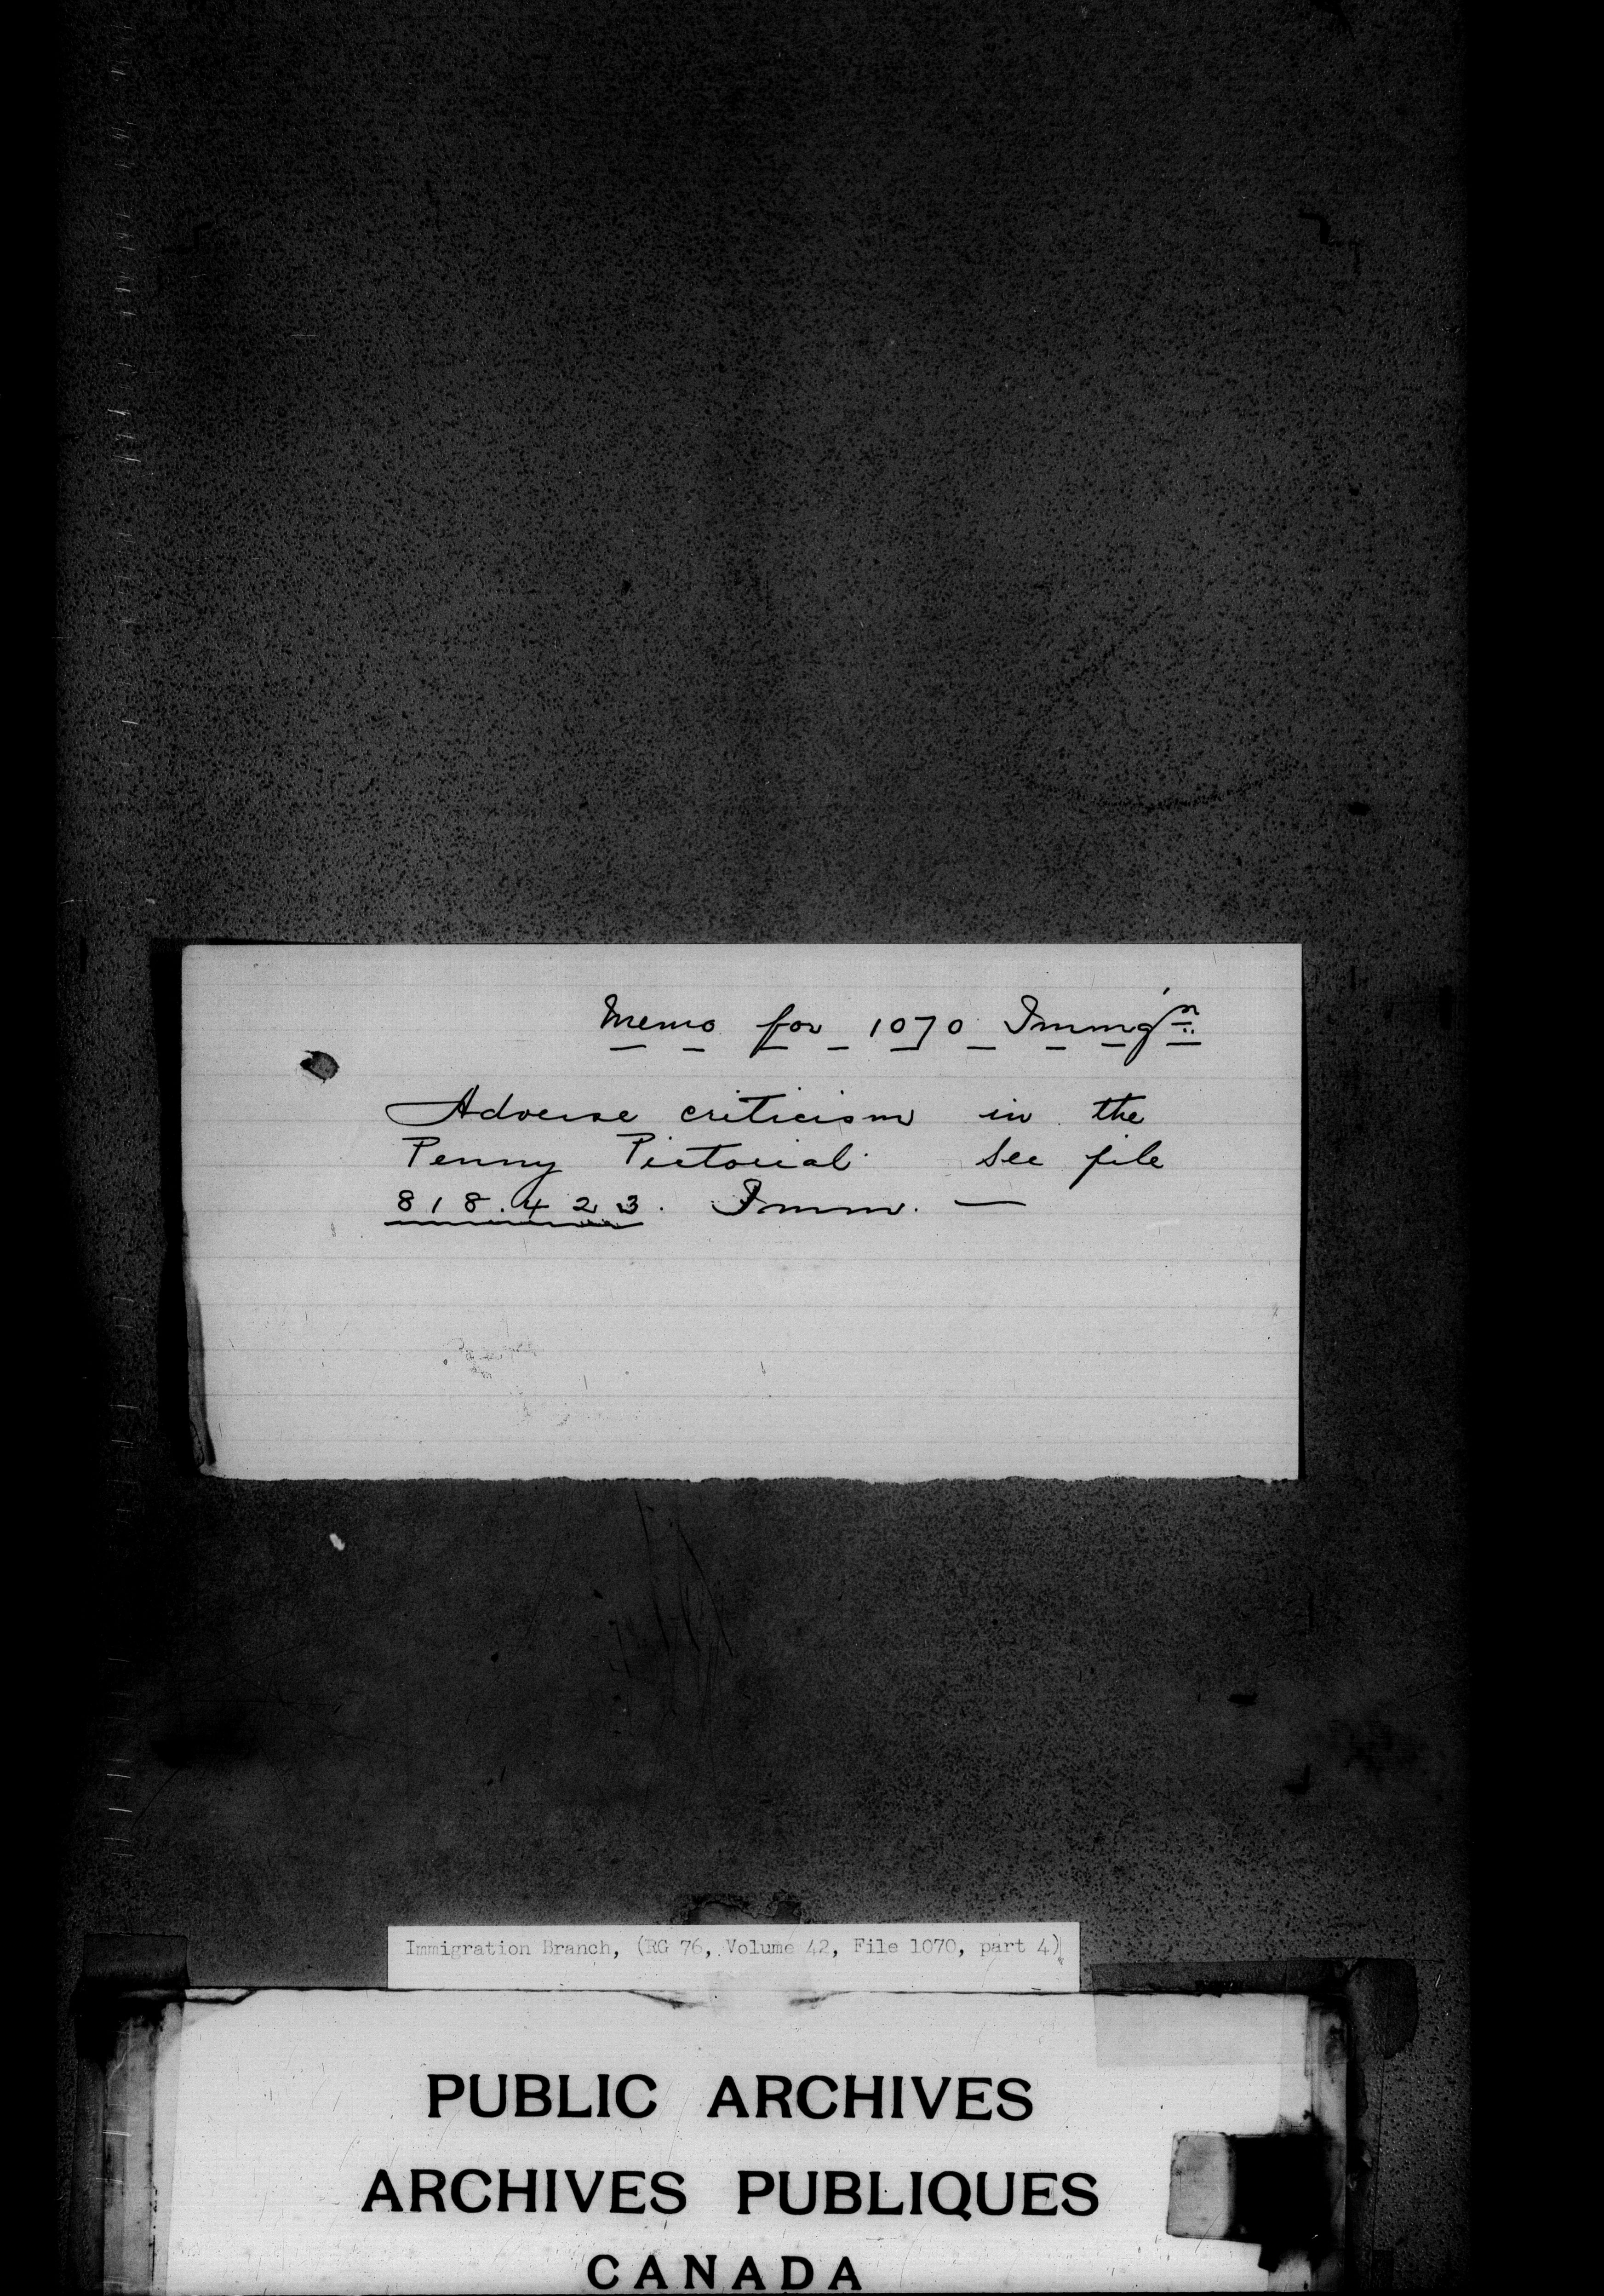 Memo for 1070 Immg'n
Adverse criticism in the
Penny Pictorial. See file
818.423. Imm. —
Immigration Branch, (RG 76, Volume 42, File 1070, part 4)
PUBLIC ARCHIVES
ARCHIVES PUBLIQUES
CANADA